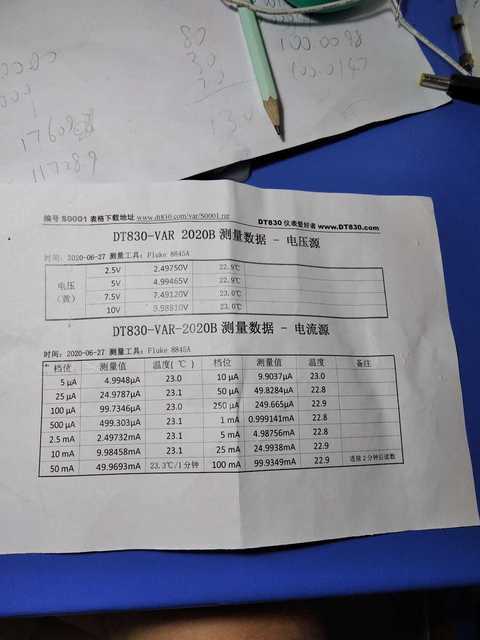 80
17609
117289
编号 S0001 表格下载地址 www.dt830.com/var/S0001.rar DT830 仪表爱好者 www.DT830.com
DT830-VAR 2020B 测量数据 - 电压源
时间: 2020-06-27 测量工具: Fluke 8845A
电压(黄) 2.5V 2.49750V 22.9℃
5V 4.99465V 22.9℃
7.5V 7.49120V 23.0℃
10V 23.0℃
DT830-VAR-2020B 测量数据 - 电流源
时间: 2020-06-27 测量工具: Fluke 8845A
档位 测量值 温度(℃) 档位 测量值 温度 备注
5 μA 4.9948μA 23.0 10 μA 9.9037μA 23.0
25 μA 24.9787μA 23.1 50 μA 49.8284μA 22.8
100 μA 99.7346μA 23.0 250 μA 249.665μA 22.9
500 μA 499.303μA 23.1 1 mA 0.999141mA 22.8
2.5 mA 2.49732mA 23.1 5 mA 4.98756mA 22.8
10 mA 9.98458mA 23.1 25 mA 24.9938mA 22.9
50 mA 49.9693mA 23.3℃/1分钟 100 mA 99.9349mA 22.9 连接2分钟后读数